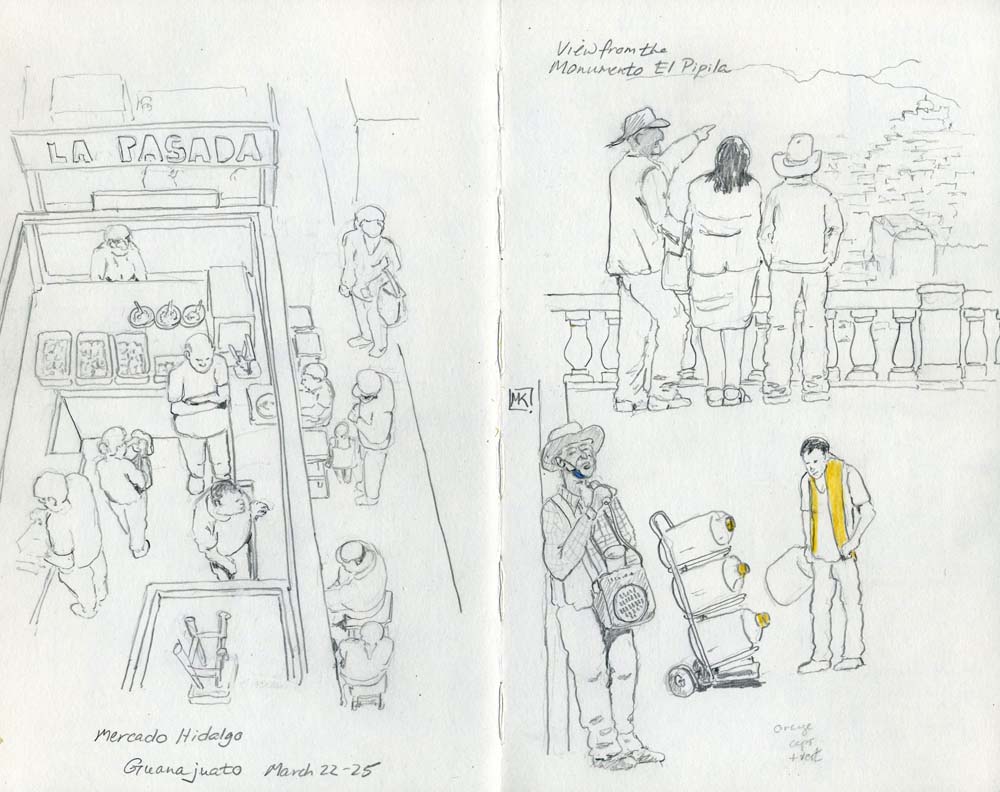 LA PASADA
Mercado Hidalgo
Guanajuato March 22-25
View from the
Monumento El Pipila
MK!
orange
caps
+ vest